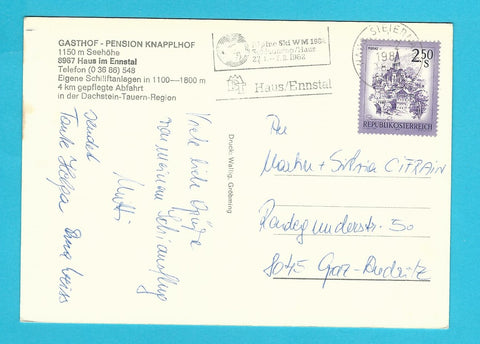 GASTHOF - PENSION KNAPPLHOF
1150 m Seehöhe
8967 Haus im Ennstal
Telefon (0 36 86) 548
Eigene Schiliftanlagen in 1100—1800 m
4 km gepflegte Abfahrt
in der Dachstein-Tauern-Region
Alpine Ski WM 1982
Schladming/Haus
1982
Haus/Ennstal
2.50
S
REPUBLIK ÖSTERREICH
Druck: Wallig, Gröbming
Viele liebe Grüße
von meinem Schiausflug
sendet
Mutti
Tante Helga
An
Martin + Silvia CITRAIN
50
8045 Graz-Andritz